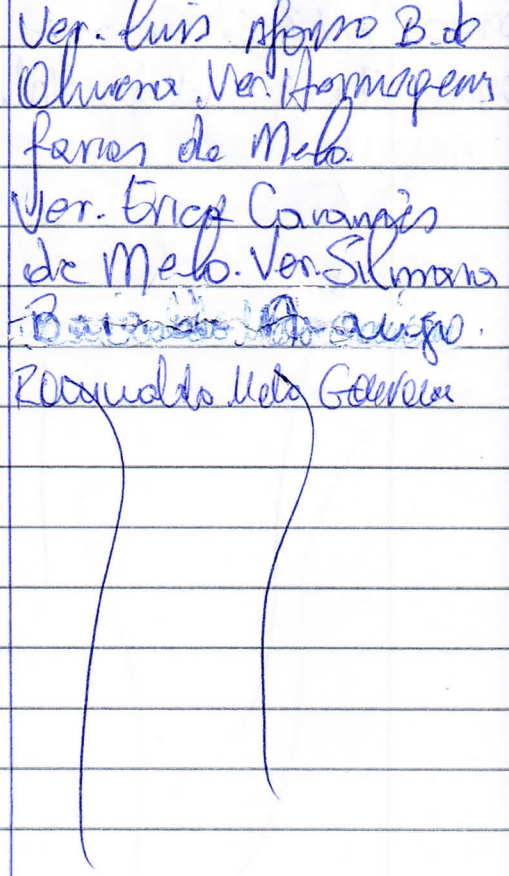 Ver. Luis Afonso B. de
Oliveira. Ver. Hermogens
farias de Melo.
Ver. Erica Caranjés
de Melo. Ver. Silmara
Araújo.
Romualdo Melo Gouveia